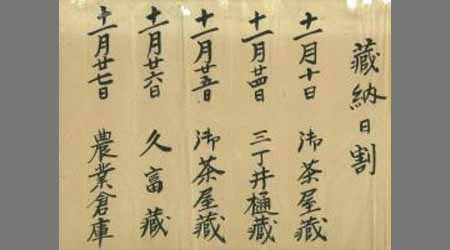 藏納日割
十一月十日 御茶屋藏
十一月廿四日 三丁井樋藏
十一月廿五日 御茶屋藏
十一月廿六日 久富藏
十一月廿七日 農業倉庫